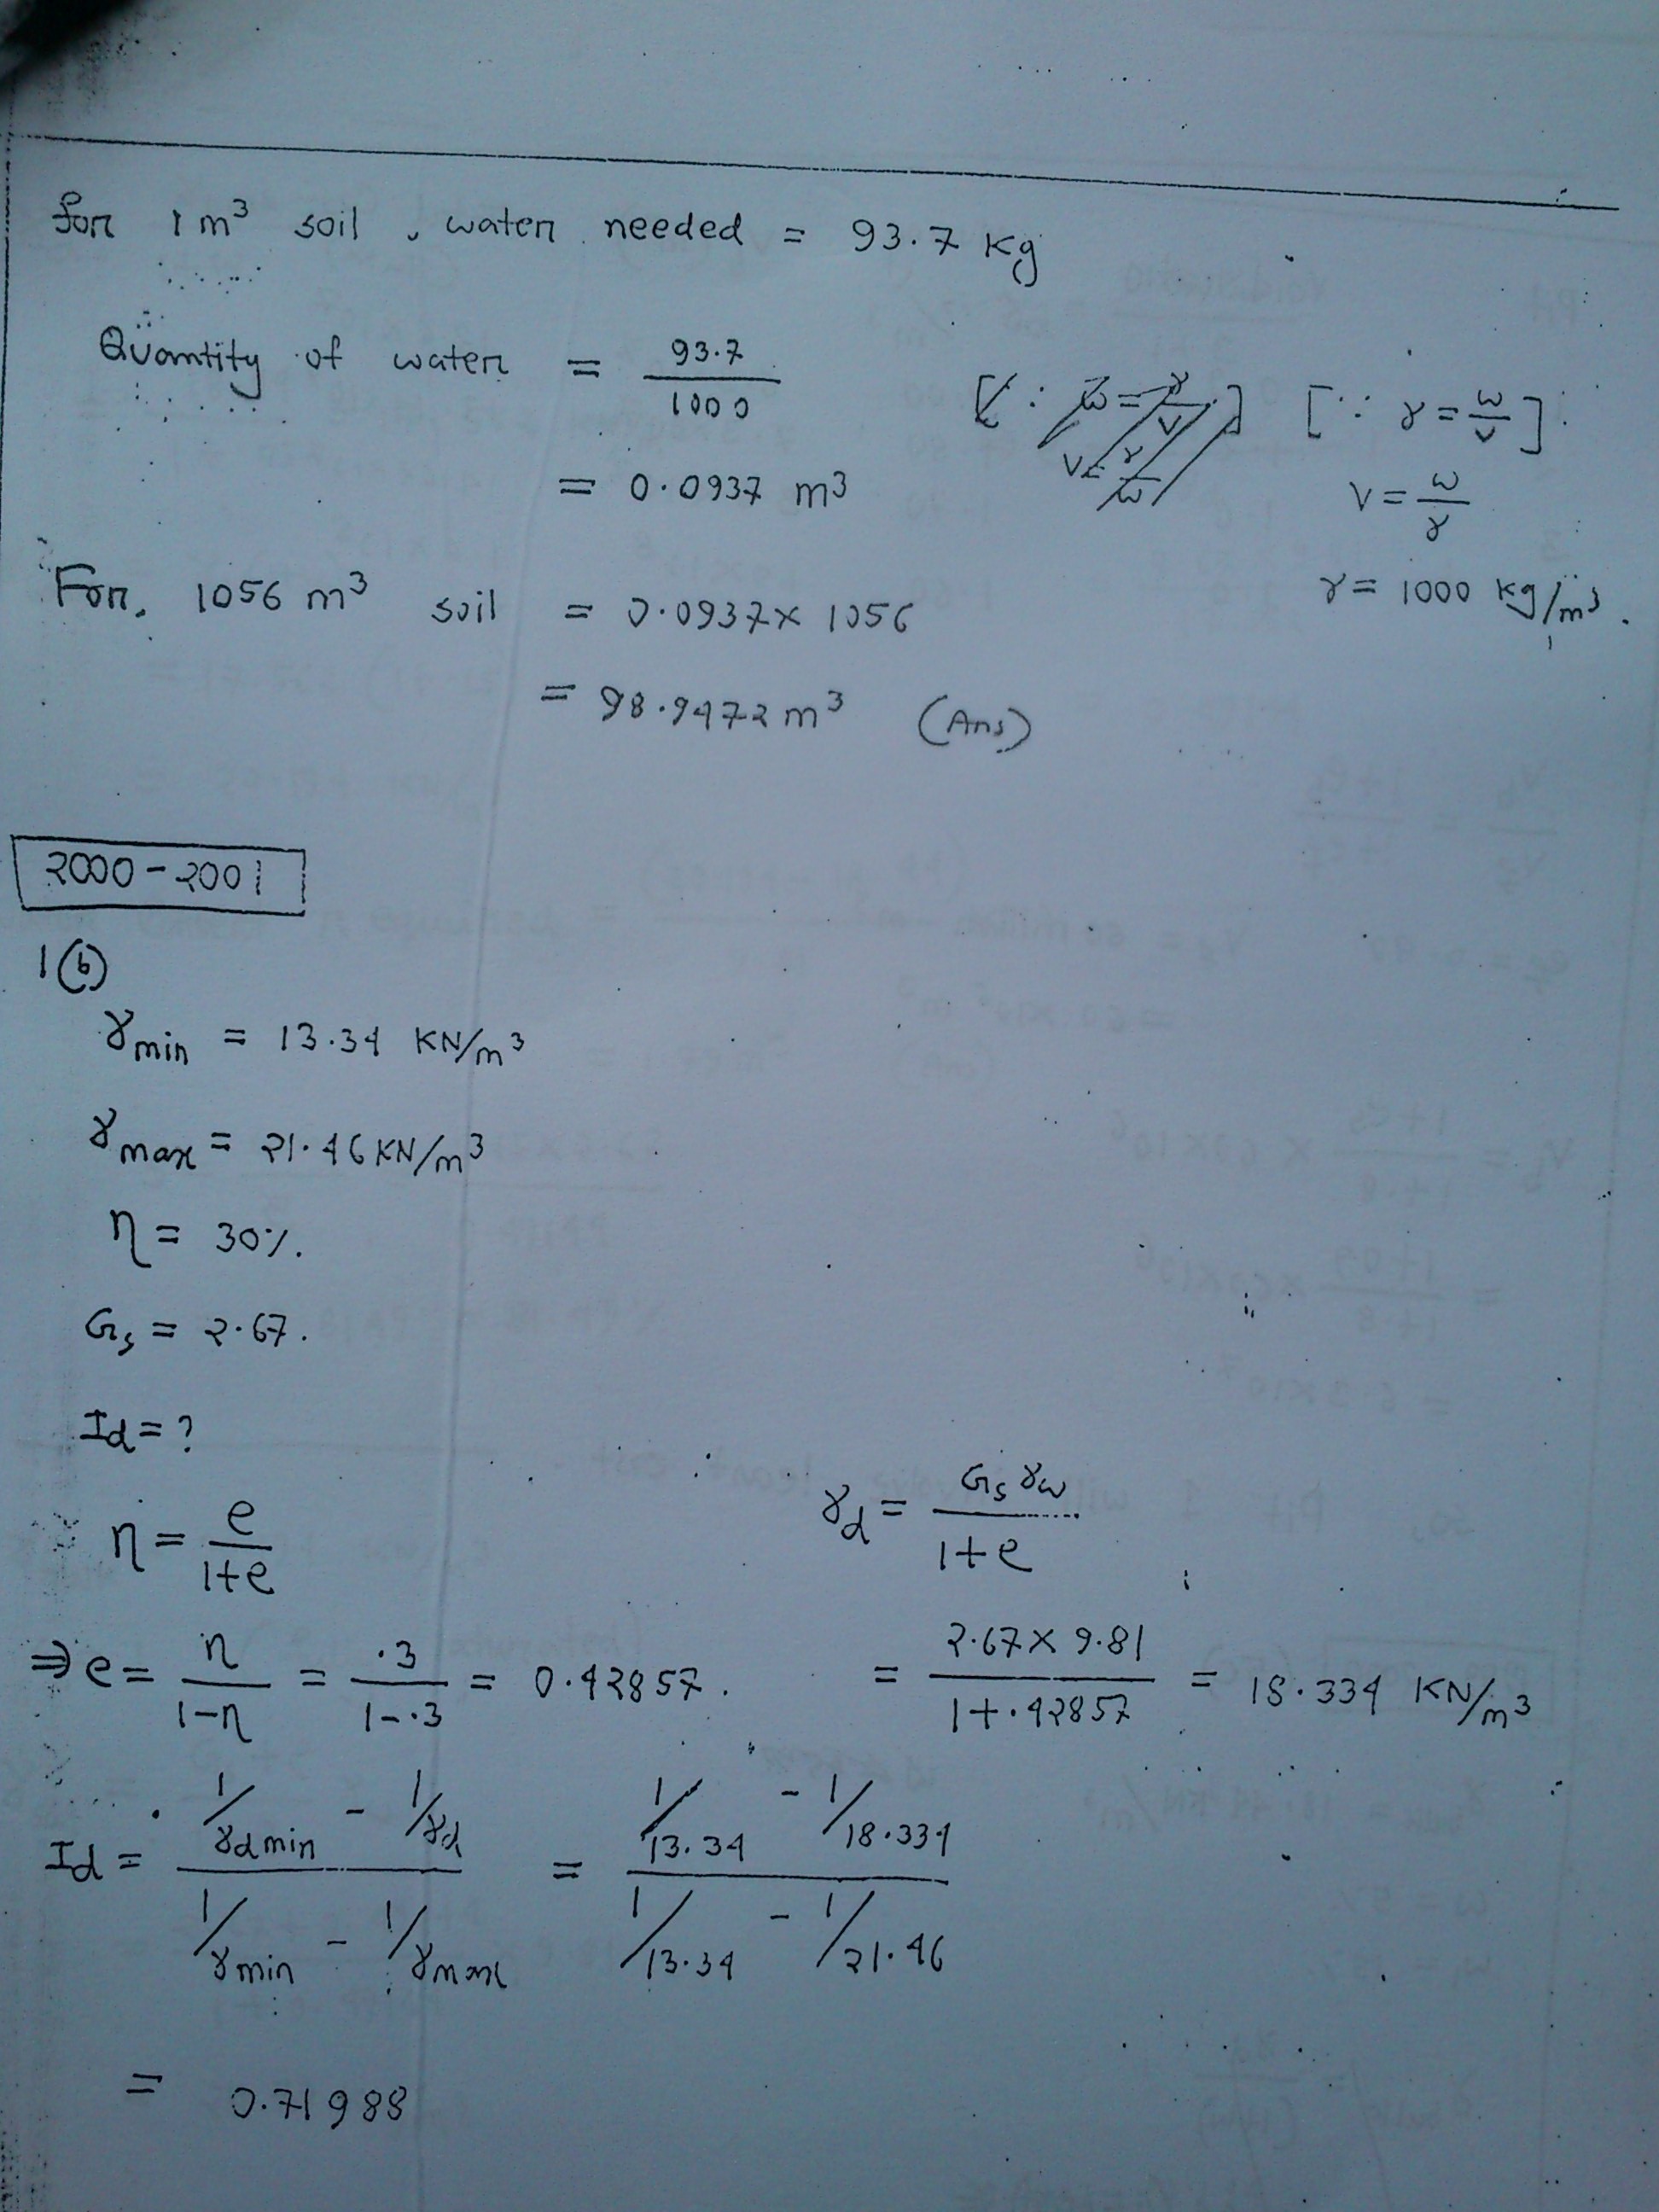 for 1 m³ soil, water needed = 93.7 Kg
Quantity of water = 93.7/1000 [∵ γ = ω/V]
= 0.0937 m³ V = ω/γ
For, 1056 m³ soil = 0.0937 × 1056 γ = 1000 kg/m³.
= 98.9472 m³ (Ans)
2000-2001
1(b)
γmin = 13.34 KN/m³
γmax = 21.46 KN/m³
η = 30%.
Gs = 2.67.
Id = ?
η = e/1+e γd = Gs γw/1+e
⇒ e = η/1-η = .3/1-.3 = 0.42857. = 2.67 × 9.81/1+.42857 = 18.334 KN/m³
Id = (1/γdmin - 1/γd)/(1/γmin - 1/γmax) = (1/13.34 - 1/18.334)/(1/13.34 - 1/21.46)
= 0.71988